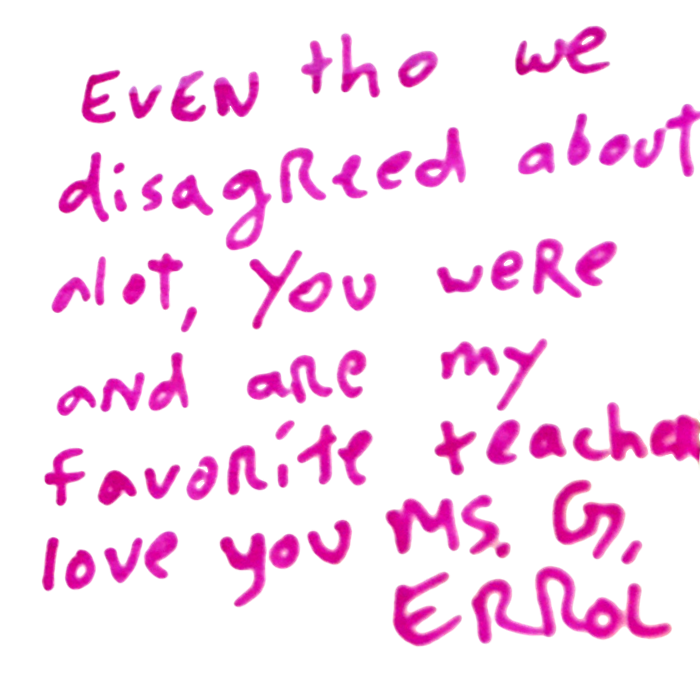 EVEN tho we
disagreed about
alot, you were
and are my
favorite teacher
love you Ms. G,
ERROL